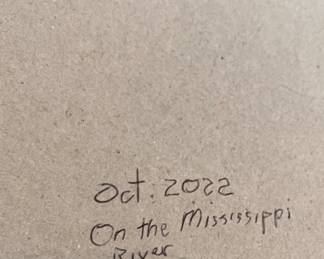 Oct. 2022
On the Mississippi
River